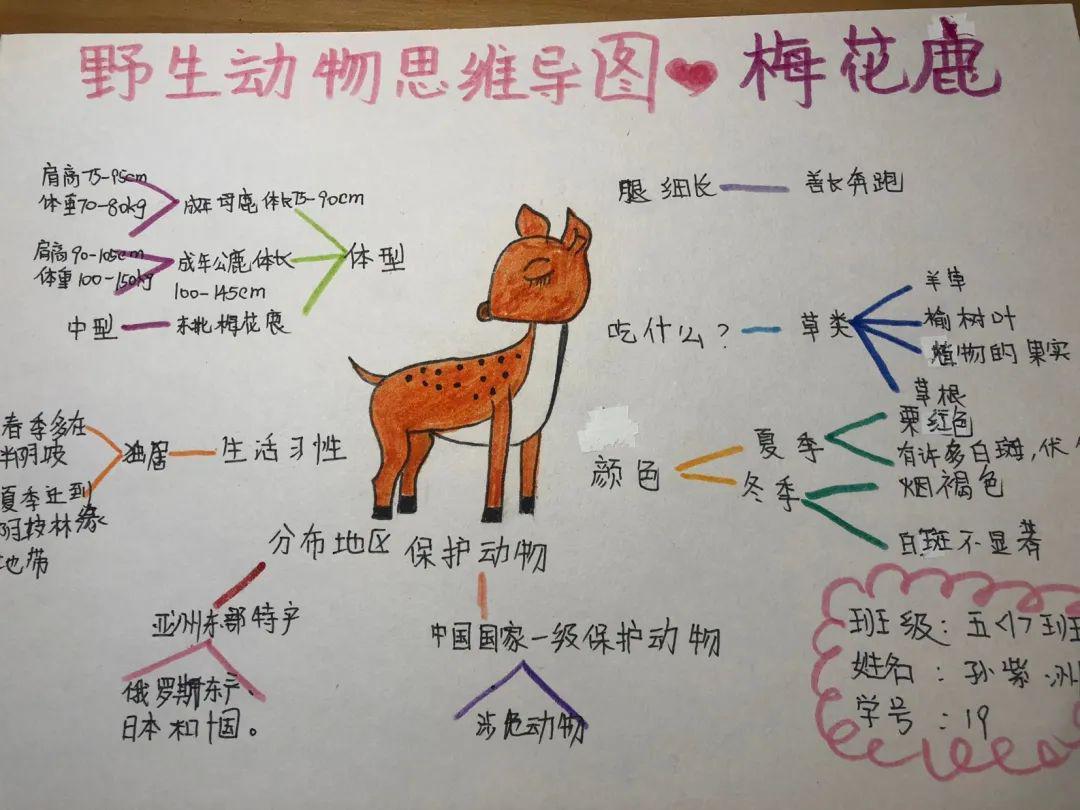 野生动物思维导图 梅花鹿
肩高75-95cm
体重70-80kg
成年母鹿体长75-90cm
肩高90-105cm
体重100-150kg
成年公鹿体长
100-145cm
体型
中型
东北梅花鹿
腿细长
善长奔跑
吃什么?
草类
羊草
榆树叶
植物的果实
草根
春季多在
半阴坡
夏季迁到
阴坡林缘
地带
生活习性
颜色
夏季
栗红色
有许多白斑,伏
冬季
烟褐色
白斑不显著
分布地区
亚洲东部特产
俄罗斯东
日本和中国。
保护动物
中国国家一级保护动物
危动物
班级:五<1>班
姓名:孙紫洲
学号:19